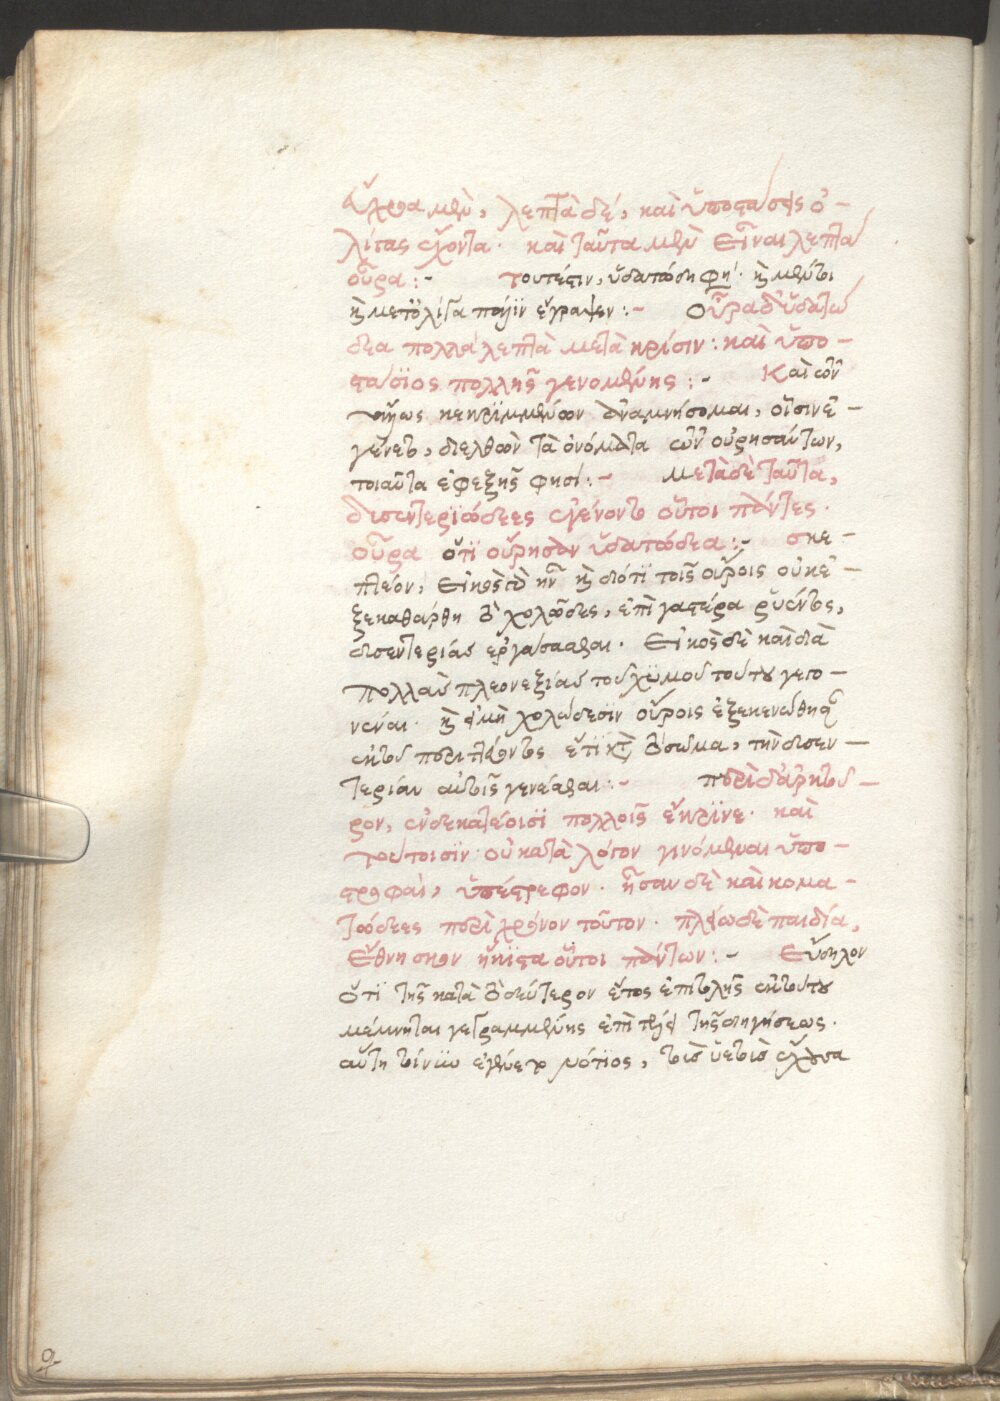 εὔχροα μὲν, λεπτὰ δέ, καὶ ὑποστάσιας ὀ-
λίγας ἔχοντα· καὶ ταῦτα μὲν εἶναι λεπτὰ
οὖρα :- τουτέστιν, ὑδατώδη φη· ἢ μέντοι
ἢ μετ' ὀλίγα πάλιν ἔγραψεν :- Οὖρα δ' ὑδατώ
δεα πολλὰ λεπτὰ μετὰ κρίσιν : καὶ ὑπο-
στάσιος πολλῆς γενομένης :- Καὶ ὧν
κεκριμμένων ἀναμνήσομαι, οἷσιν ἐ-
γένετο, διελθὼν τὰ ὀνόματα τῶν οὐρησάντων,
τοιαῦτα ἐφεξῆς φησί :- μετὰ δὲ ταῦτα,
δισεντεριώδεες ἐγένοντο οὗτοι πάντες·
οὖρα ὅτι οὔρησαν ὑδατώδεα :- σκε-
πτέον, εἰκὸς ἦν ἢ διότι τοῖς οὔροις οὐκ ἐ-
ξεκαθάρθη τὸ χολῶδες, ἐπὶ γαστέρα ῥυέντος,
δισεντερίας ἐργάσασθαι· Εἰκὸς δὲ καὶ διὰ
πολλὰς πλεονεξίας τοῦ χυμοῦ τούτου γεγο-
νέναι· ἢ χολώδεσιν οὔροις ἐξεκενώθη
ἔτι κατὰ τὸ σῶμα, τὴν δισεν-
τερίαν αὐτοῖς γενέσθαι :- περὶ δ' ἀρκτοῦ-
ρον, ἑνδεκατέοισι πολλοῖς ἔκρινε· καὶ
τούτοισιν οὐ κατὰ λόγον γινόμεναι ὑπο-
στροφαὶ, ὑπέστρεφον· ἦσαν δὲ καὶ κομα-
τώδεες περὶ χρόνον τοῦτον· πλείω δὲ παιδία,
ἔθνησκον ἥκιστα οὗτοι πάντων :- Εὔδηλον
ὅτι τῆς κατὰ τὸ δεύτερον ἔτος ἐπιτολῆς ἀρκτούρου
μέμνηται γεγραμμένης ἐπὶ τέλει τῆς διηγήσεως·
αὕτη τοίνυν ἐγένετο νότιος, τοῖς ὑετοῖς ἔχουσα